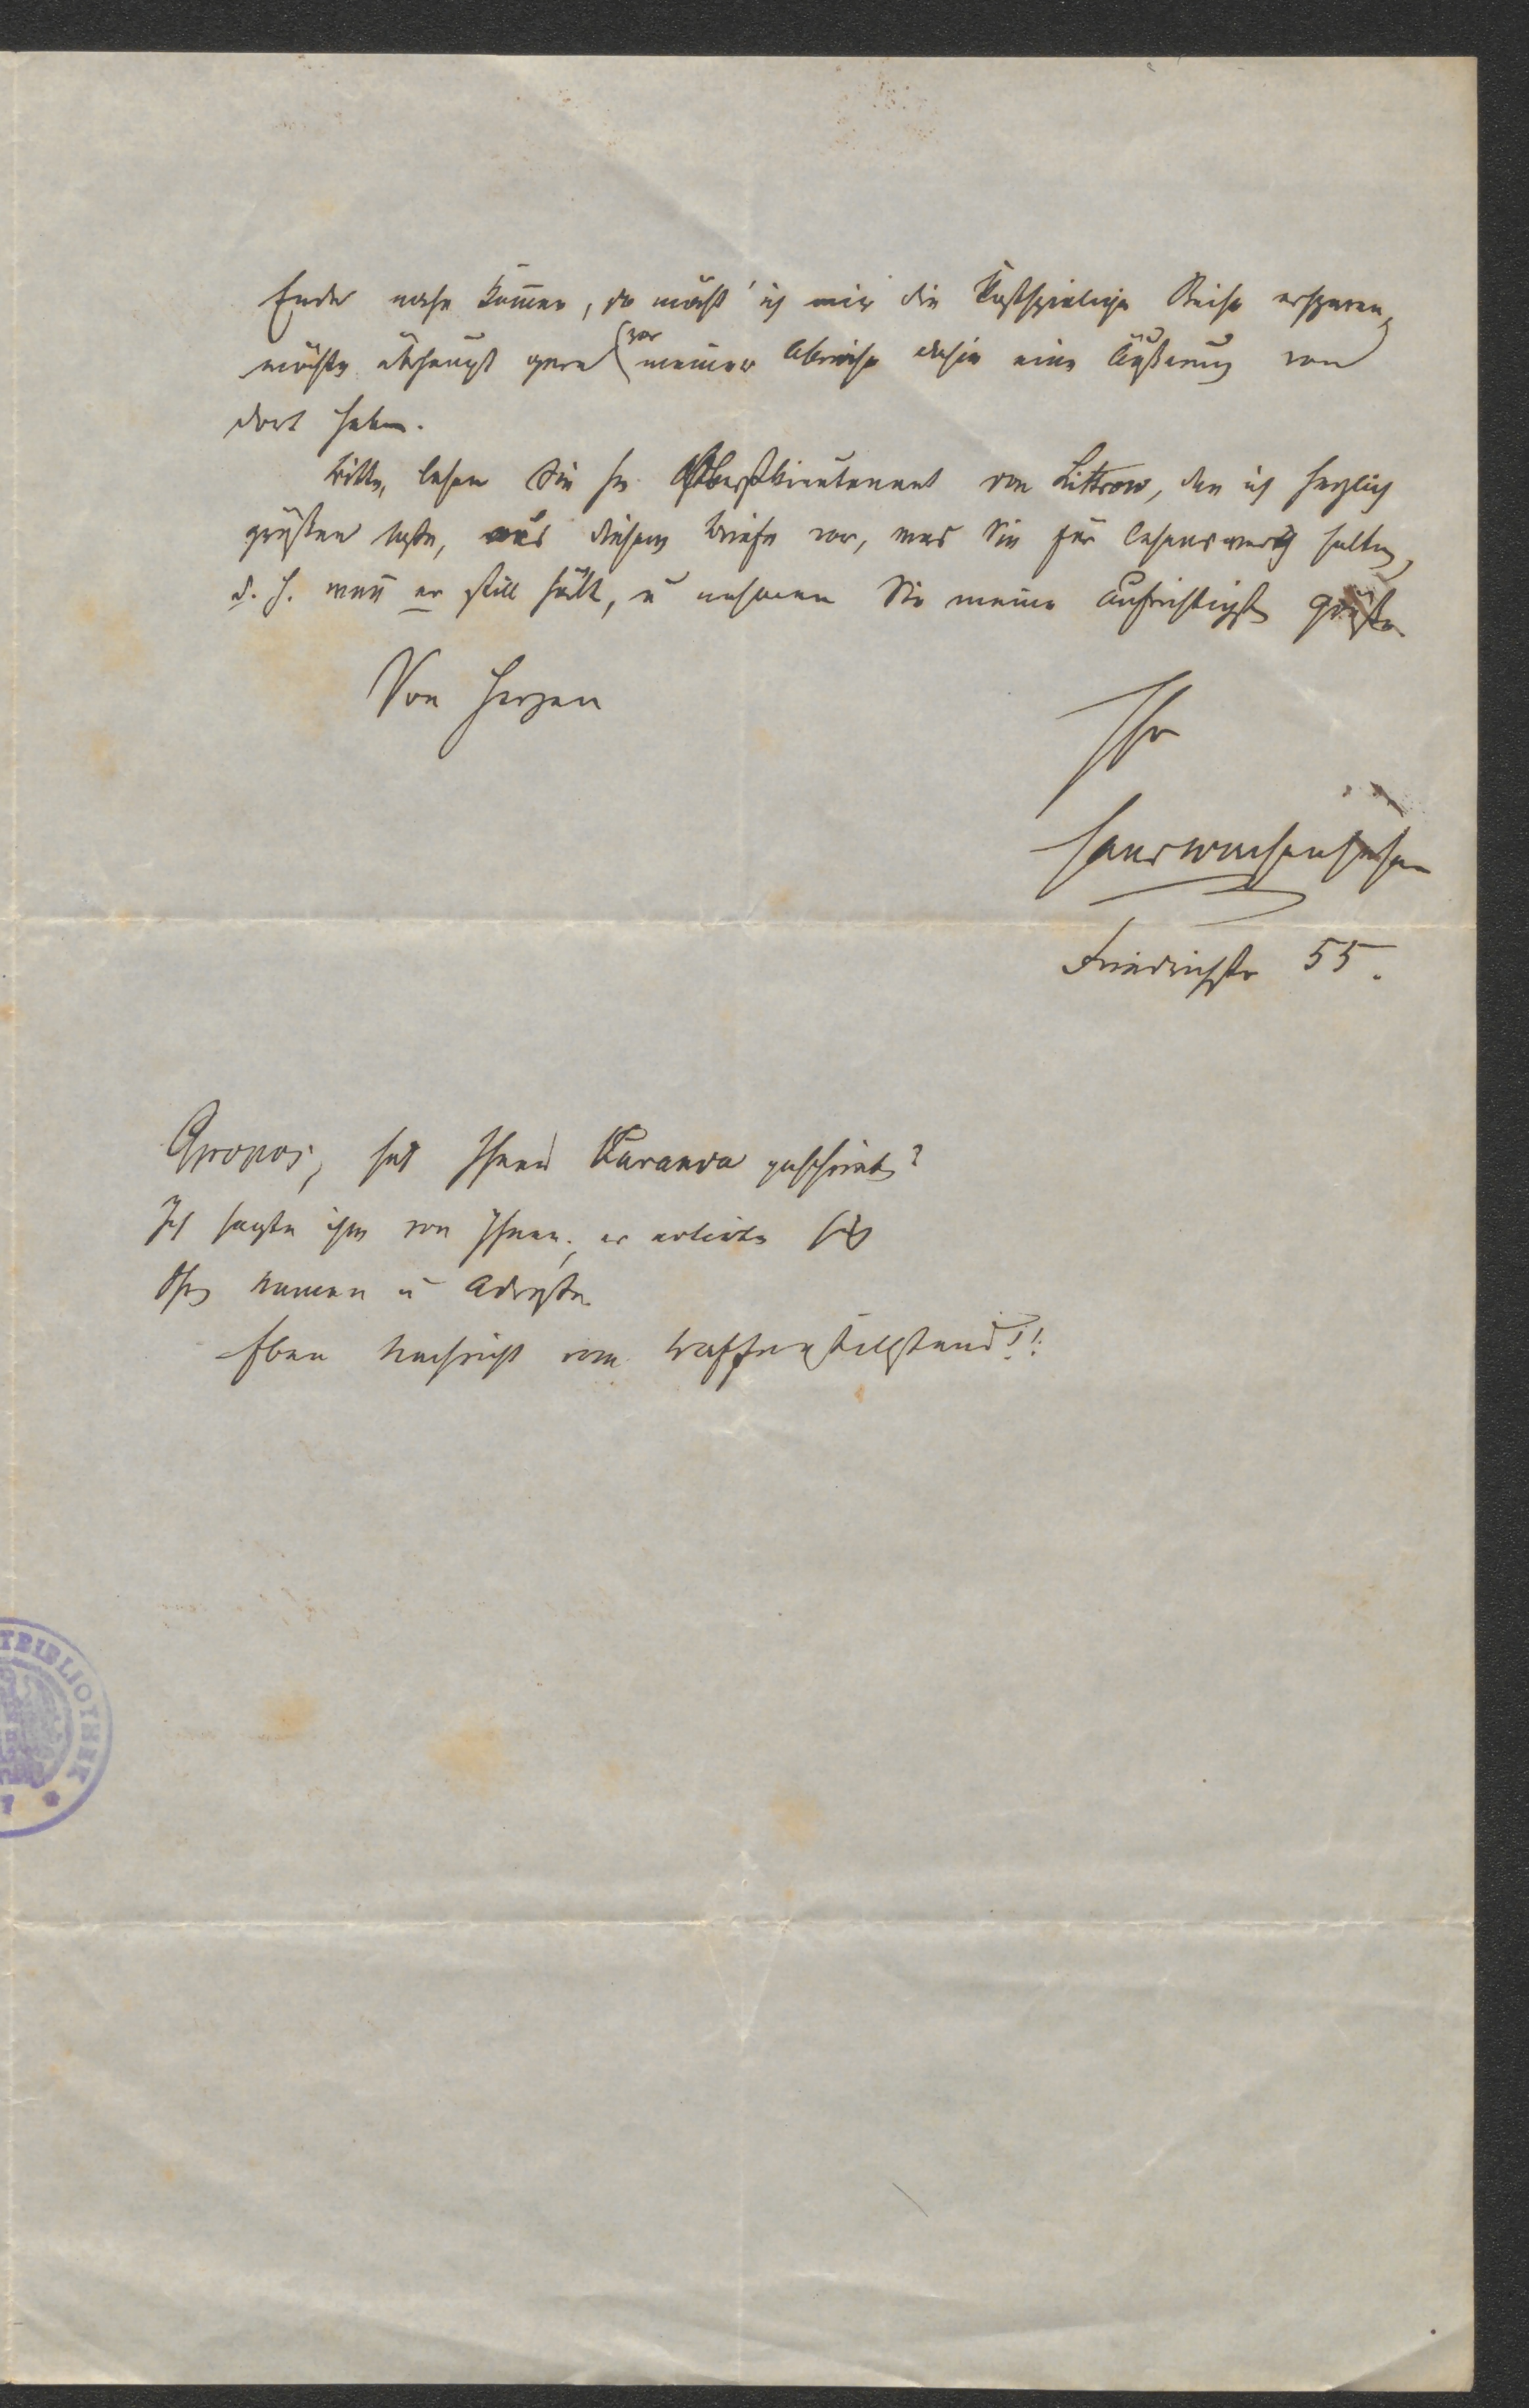 Ende nahe kom̄en, so möcht' ich mir die kostspielige Reise ersparen,
möchte überhaupt gern (vor meiner Abreise dahin eine Äußerung von
dort haben.
Bitte, lesen Sie Hr. Oberstlieutenant von Littrow, den ich herzlich
grüßen lasse, aus diesem Briefe vor, was Sie für lesenswerth halten,
d. h. wen̄ er still hält, u nehmen Sie meine aufrichtigsten Grüße
Von Herzen
Ihr
Hans Wachenhusen
Friedrichstr 55.
Apropos, hat Ihnen Kuranda geschrieben?
Ich sagte ihm von Ihnen; er erbat sich
Ihren Namen u Adresse.
Eben Nachricht vom Waffenstillstand!!
TBIBLIOTHEK